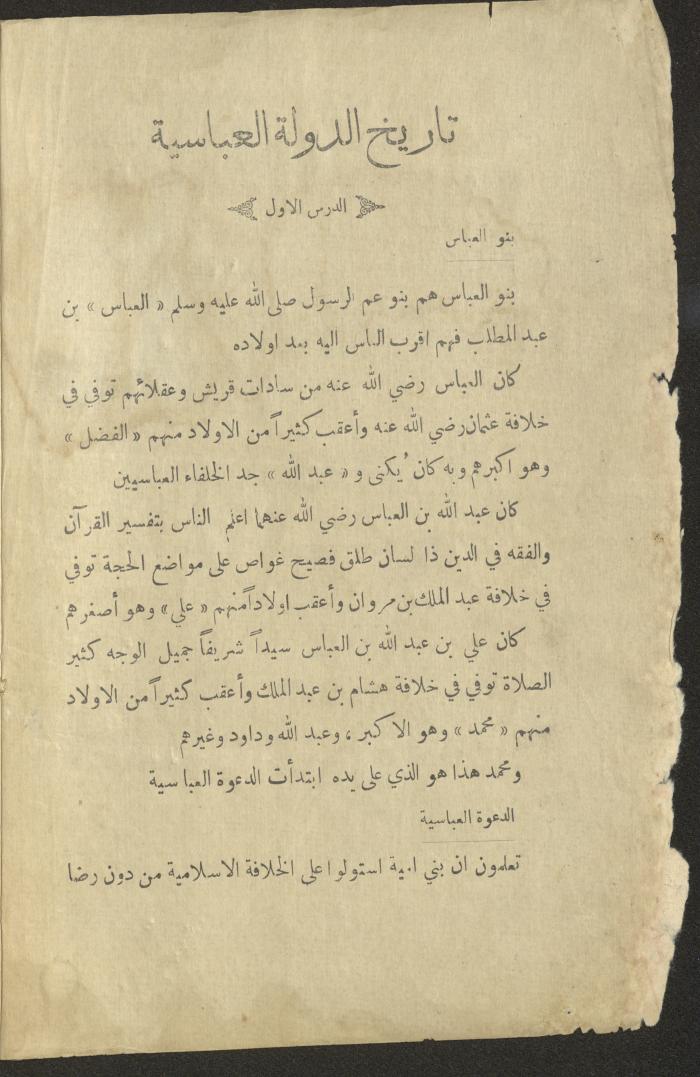 تاريخ الدولة العباسية
الدرس الاول
بنو العباس
بنو العباس هم بنو عم الرسول صلى الله عليه وسلم « العباس » بن
عبد المطلب فهم اقرب الناس اليه بعد اولاده
كان العباس رضي الله عنه من سادات قريش وعقلائهم توفي في
خلافة عثمان رضي الله عنه وأعقب كثيراً من الاولاد منهم « الفضل »
وهو اكبرهم وبه كان يُكنى و « عبد الله » جد الخلفاء العباسيين
كان عبد الله بن العباس رضي الله عنهما اعلم الناس بتفسير القرآن
والفقه في الدين ذا لسان طلق فصيح غواص على مواضع الحجة توفي
في خلافة عبد الملك بن مروان وأعقب اولاداً منهم « علي » وهو أصغرهم
كان علي بن عبد الله بن العباس سيداً شريفاً جميل الوجه كثير
الصلاة توفي في خلافة هشام بن عبد الملك وأعقب كثيراً من الاولاد
منهم « محمد » وهو الاكبر ، وعبد الله وداود وغيرهم
ومحمد هذا هو الذي على يده ابتدأت الدعوة العباسية
الدعوة العباسية
تعلمون ان بني امية استولوا على الخلافة الاسلامية من دون رضا